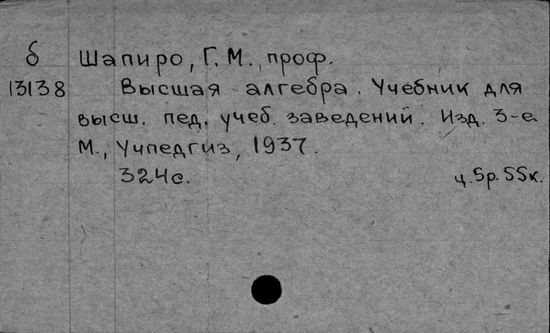 б Шапиро, Г. М., проф.
13138 Высшая алгебра. Учебник для
высш. пед. учеб. заведений. Изд. 3-е.
М., Учпедгиз, 1937.
324с. ц. 5р. 55к.